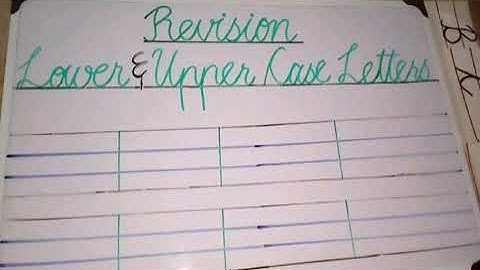 Revision
Lower & Upper Case Letters